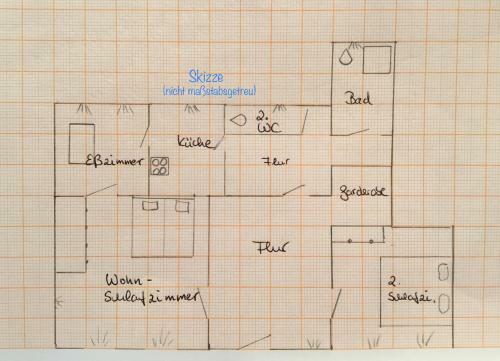 Skizze
(nicht maßstabsgetreu)
Bad
2.
WC
Küche
Eßzimmer
Flur
Garderobe
Flur
Wohn-
Schlafzimmer
2.
Schlafzi.